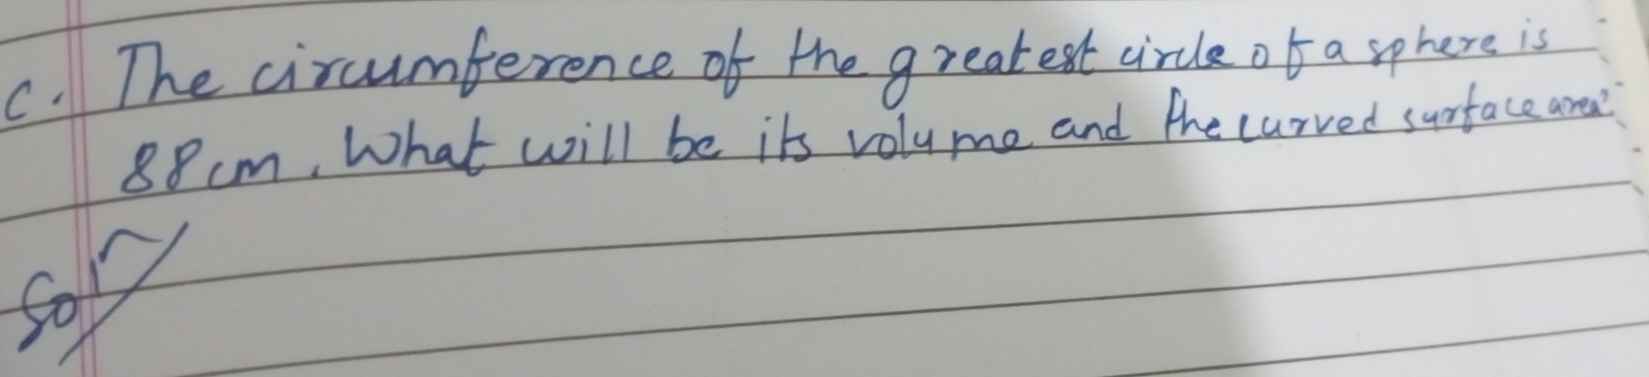 c. The circumference of the greatest circle of a sphere is
88cm. What will be its volume and the curved surface area?
Solⁿ